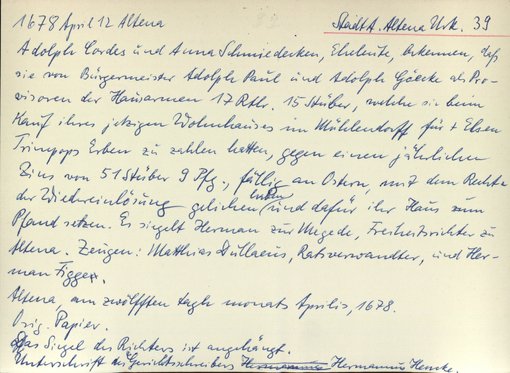 1678 April 12 Altena Stadt A. Altena Urk. 39
Adolph Cordes und Anna Schmiedecken, Eheleute, bekennen, daß
sie von Bürgermeister Adolph Paul und Adolph Göecke als Pro-
visoren der Hausarmen 17 Rthr. 15 Stüber, welche sie beim
Kauf ihres jetzigen Wohnhauses im Mühlendorff für + Elsen
Trimpops Erben zu zahlen hatten, gegen einen jährlichen
Zins von 51 Stüber 9 Pfg., fällig an Ostern, mit dem Rechte
der Wiedereinlösung geliehen haben und dafür ihr Haus zum
Pfand setzen. Es siegelt Herman zur Megede, Freiheitsrichter zu
Altena. Zeugen: Matthias Dullaeus, Ratsverwandter, und Her-
man Figge.
Altena, am zwölfften tagh monats Aprilis, 1678.
Orig. Papier.
Das Siegel des Richters ist angehängt.
Unterschrift des Gerichtschreibers Hermannus Hencke.